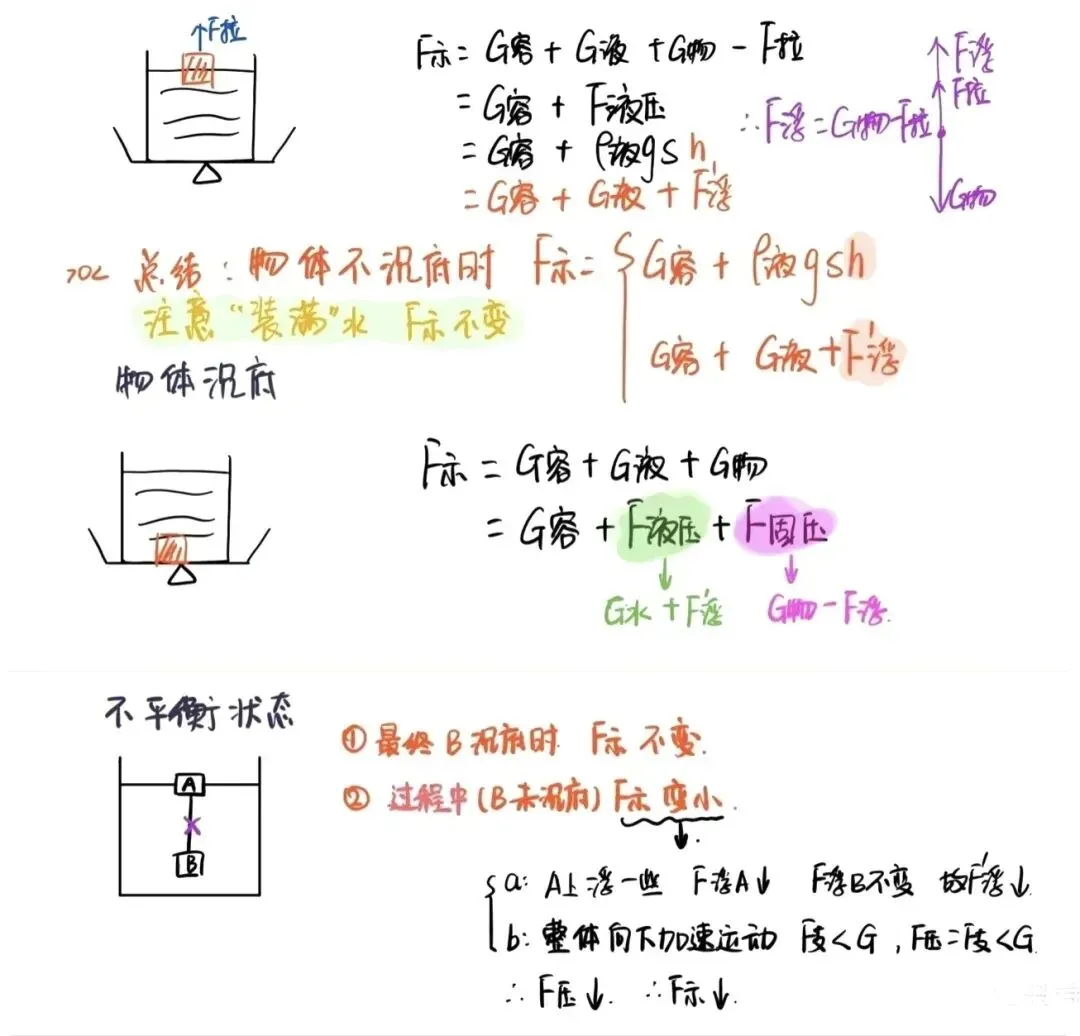 ↑F拉
F示 = G容 + G液 + G物 - F拉
= G容 + F液压
= G容 + ρ液gsh
= G容 + G液 + F'浮
∴F浮 = G物-F拉
F浮
F拉
G物
总结：物体不沉底时 F示= { G容 + ρ液gsh
G容 + G液 + F'浮
注意"装满"水 F示不变
物体沉底
F示 = G容 + G液 + G物
= G容 + F液压 + F固压
G水 + F'浮 G物 - F浮.
不平衡状态
A
B
① 最终B沉底时 F示 不变.
② 过程中(B未沉底) F示 变小.
a: A上浮一些 F浮A↓ F浮B不变 故F'浮↓.
b: 整体向下加速运动 F支<G , F压=F支<G
∴F压↓. ∴F示↓.